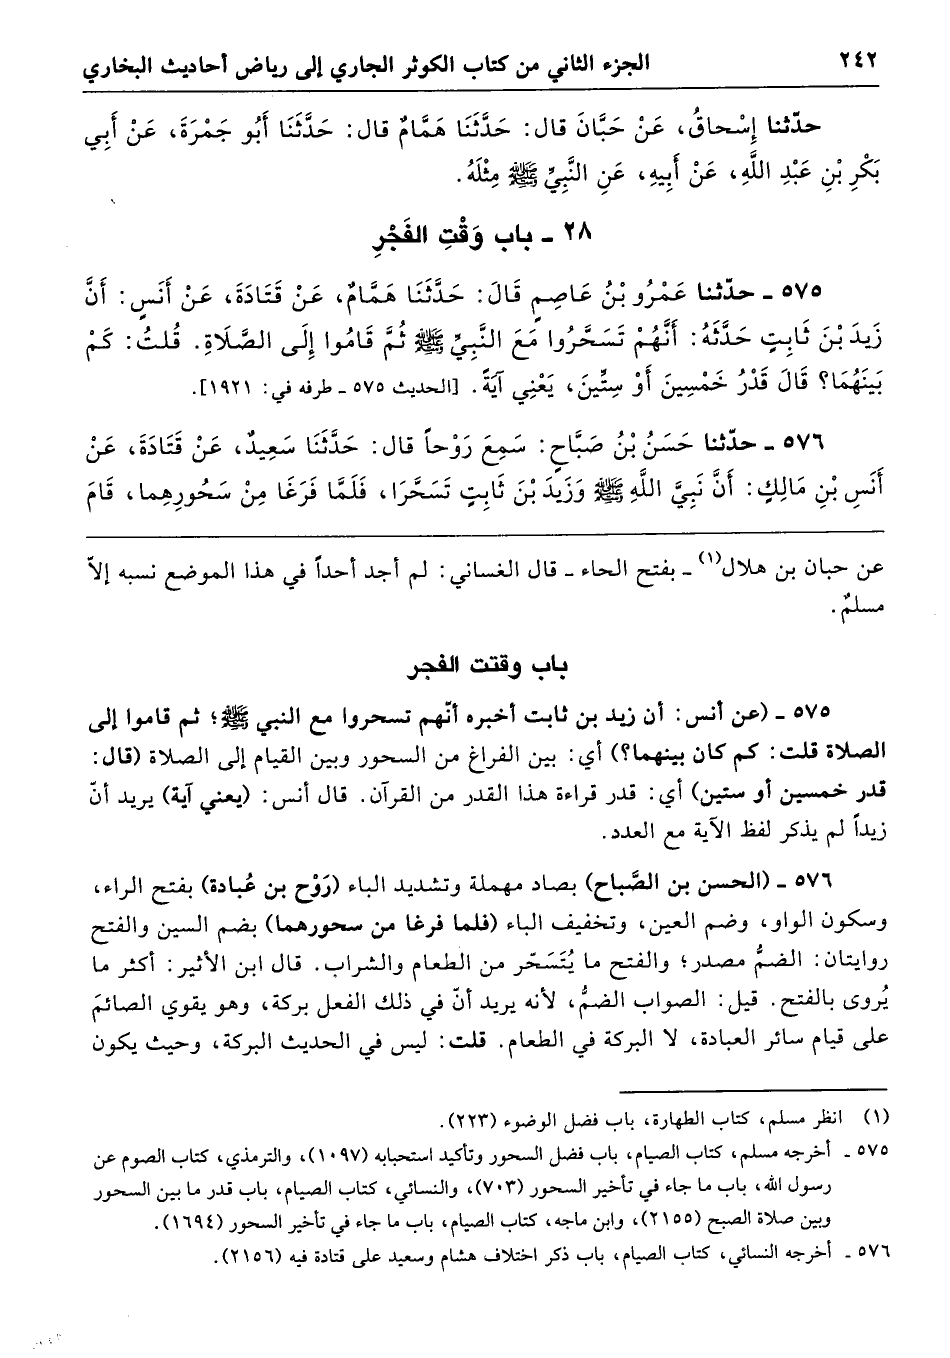 ٢٤٢ الجزء الثاني من كتاب الكوثر الجاري إلى رياض أحاديث البخاري
حدّثنا إِسْحاقُ، عَنْ حَبَّانَ قال: حَدَّثَنَا هَمَّامٌ قال: حَدَّثَنَا أَبُو جَمْرَةَ، عَنْ أَبِي
بَكْرِ بْنِ عَبْدِ اللَّهِ، عَنْ أَبِيهِ، عَنِ النَّبِيِّ ﷺ مِثْلَهُ.
٢٨ ـ باب وَقْتِ الفَجْرِ
٥٧٥ ـ حدّثنا عَمْرُو بْنُ عَاصِمٍ قَالَ: حَدَّثَنَا هَمَّامٌ، عَنْ قَتَادَةَ، عَنْ أَنَسٍ: أَنَّ
زَيدَ بْنَ ثَابِتٍ حَدَّثَهُ: أَنَّهُمْ تَسَحَّرُوا مَعَ النَّبِيِّ ﷺ ثُمَّ قَامُوا إِلَى الصَّلَاةِ. قُلتُ: كَمْ
بَينَهُمَا؟ قَالَ قَدْرُ خَمْسِينَ أَوْ سِتِّينَ، يَعْنِي آيَةً. [الحديث ٥٧٥ ـ طرفه في: ١٩٢١].
٥٧٦ ـ حدّثنا حَسَنُ بْنُ صَبَّاحٍ: سَمِعَ رَوْحاً قال: حَدَّثَنَا سَعِيدٌ، عَنْ قَتَادَةَ، عَنْ
أَنَسِ بْنِ مَالِكٍ: أَنَّ نَبِيَّ اللَّهِ ﷺ وَزَيدَ بْنَ ثَابِتٍ تَسَحَّرَا، فَلَمَّا فَرَغَا مِنْ سَحُورِهِما، قَامَ
عن حبان بن هلال(١) ـ بفتح الحاء ـ قال الغساني: لم أجد أحداً في هذا الموضع نسبه إلاّ
مسلمٌ.
باب وقتت الفجر
٥٧٥ ـ (عن أنس: أن زيد بن ثابت أخبره أنّهم تسحروا مع النبي ﷺ؛ ثم قاموا إلى
الصلاة قلت: كم كان بينهما؟) أي: بين الفراغ من السحور وبين القيام إلى الصلاة (قال:
قدر خمسين أو ستين) أي: قدر قراءة هذا القدر من القرآن. قال أنس: (يعني آية) يريد أنّ
زيداً لم يذكر لفظ الآية مع العدد.
٥٧٦ ـ (الحسن بن الصَّباح) بصاد مهملة وتشديد الباء (رَوْح بن عُبادة) بفتح الراء،
وسكون الواو، وضم العين، وتخفيف الباء (فلما فرغا من سحورهما) بضم السين والفتح
روايتان: الضمُّ مصدر؛ والفتح ما يُتَسَحّر من الطعام والشراب. قال ابن الأثير: أكثر ما
يُروى بالفتح. قيل: الصواب الضمُّ، لأنه يريد أنّ في ذلك الفعل بركة، وهو يقوي الصائمَ
على قيام سائر العبادة، لا البركة في الطعام. قلت: ليس في الحديث البركة، وحيث يكون
(١) انظر مسلم، كتاب الطهارة، باب فضل الوضوء (٢٢٣).
٥٧٥ ـ أخرجه مسلم، كتاب الصيام، باب فضل السحور وتأكيد استحبابه (١٠٩٧)، والترمذي، كتاب الصوم عن
رسول الله، باب ما جاء في تأخير السحور (٧٠٣)، والنسائي، كتاب الصيام، باب قدر ما بين السحور
وبين صلاة الصبح (٢١٥٥)، وابن ماجه، كتاب الصيام، باب ما جاء في تأخير السحور (١٦٩٤).
٥٧٦ ـ أخرجه النسائي، كتاب الصيام، باب ذكر اختلاف هشام وسعيد على قتادة فيه (٢١٥٦).